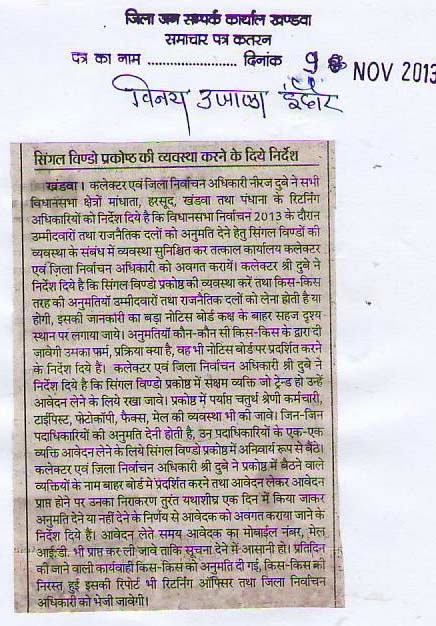 जिला जन सम्पर्क कार्याल खण्डवा
समाचार पत्र कतरन
पत्र का नाम ........................ दिनांक 9 NOV 2013
विनय उजाला इंदौर
सिंगल विण्डो प्रकोष्ठ की व्यवस्था करने के दिये निर्देश
खंडवा। कलेक्टर एवं जिला निर्वाचन अधिकारी नीरज दुबे ने सभी
विधानसभा क्षेत्रों मांधाता, हरसूद, खंडवा तथा पंधाना के रिटर्निंग
अधिकारियों को निर्देश दिये है कि विधानसभा निर्वाचन 2013 के दौरान
उम्मीदवारों तथा राजनैतिक दलों को अनुमति देने हेतु सिंगल विण्डों की
व्यवस्था के संबंध में व्यवस्था सुनिश्चित कर तत्काल कार्यालय कलेक्टर
एवं जिला निर्वाचन अधिकारी को अवगत करायें। कलेक्टर श्री दुबे ने
निर्देश दिये है कि सिंगल विण्डो प्रकोष्ठ की व्यवस्था करें तथा किस-किस
तरह की अनुमतियॉ उम्मीदवारों तथा राजनैतिक दलों को लेना होती है या
होगी, इसकी जानकॉरी का बड़ा नोटिस बोर्ड कक्ष के बाहर सहज दृश्य
स्थान पर लगाया जाये। अनुमतियॉ कौन-कौन सी किस-किस के द्वारा दी
जावेगी उसका फर्म, प्रक्रिया क्या है, वह भी नोटिस बोर्ड पर प्रदर्शित करने
के निर्देश दिये हैं। कलेक्टर एवं जिला निर्वाचन अधिकारी श्री दुबे ने
निर्देश दिये है कि सिंगल विण्डो प्रकोष्ठ में सक्षम व्यक्ति जो ट्रेन्ड हो उन्हें
आवेदन लेने के लिये रखा जावे। प्रकोष्ठ में पर्याप्त चतुर्थ श्रेणी कर्मचारी,
टाईपिस्ट, फोटोकॉपी, फैक्स, मेल की व्यवस्था भी की जावे। जिन-जिन
पदाधिकारियों की अनुमति देनी होती है, उन पदाधिकारियों के एक-एक
व्यक्ति आवेदन लेने के लिये सिंगल विण्डो प्रकोष्ठ में अनिवार्य रूप से बैठे।
कलेक्टर एवं जिला निर्वाचन अधिकारी श्री दुबे ने प्रकोष्ठ में बैठने वाले
व्यक्तियों के नाम बाहर बोर्ड में प्रदर्शित करने तथा आवेदन लेकर आवेदन
प्राप्त होने पर उनका निराकरण तुरंत यथाशीघ्र एक दिन में किया जाकर
अनुमति देने या नहीं देने के निर्णय से आवेदक को अवगत कराया जाने के
निर्देश दिये हैं। आवेदन लेते समय आवेदक का मोबाईल नंबर, मेल
आई.डी. भी प्राप्त कर ली जावे ताकि सूचना देने में आसानी हो। प्रतिदिन
की जाने वाली कार्यवाही किस-किस को अनुमति दी गई, किस-किस की
निरस्त हुई इसकी रिपोर्ट भी रिटर्निंग ऑफिसर तथा जिला निर्वाचन
अधिकारी को भेजी जावेगी।